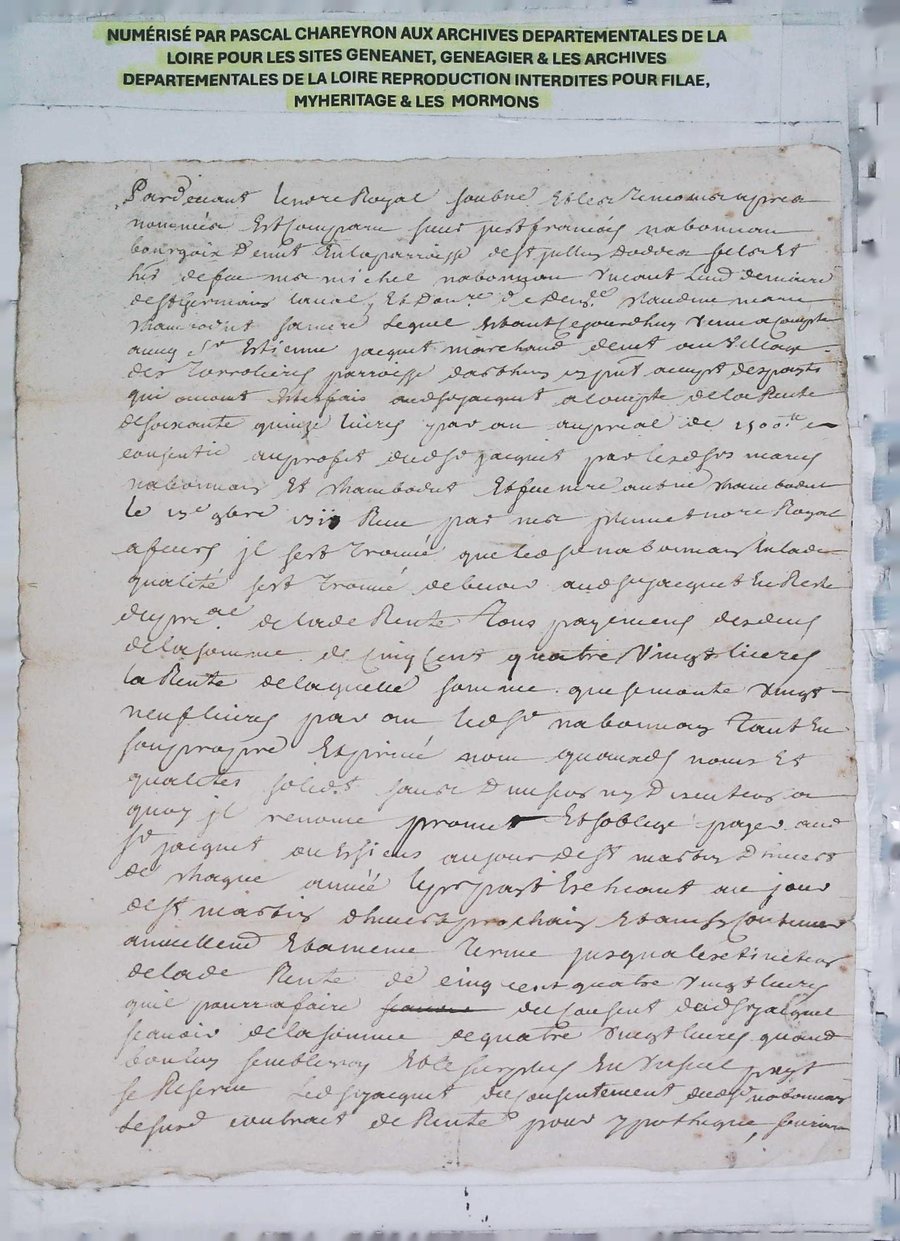 NUMÉRISÉ PAR PASCAL CHAREYRON AUX ARCHIVES DEPARTEMENTALES DE LA
LOIRE POUR LES SITES GENEANET, GENEAGIER & LES ARCHIVES
DEPARTEMENTALES DE LA LOIRE REPRODUCTION INTERDITES POUR FILAE,
MYHERITAGE & LES MORMONS
Pardevant le nore Royal soubné Et les Temoins apres
nommés Est comparu sieur françois nabonnan
bourgois Demt En la parroisse de st jullin Doddes fils Et
de feu mre michel nabonnan vivant
de st Germain Laval, Et De claudine marie
chambodut sa mere Lequel Estant Cejourdhuy venu a Compte
avecq sr Estienne jacquet marchand demt au village
des parroisse darthun
qui ont Estes fais aud sr jacquet a compte de la Rente
de soixante quinze livres par an au pnal de 1500 ll
consentie au profit dud sr jacquet par lesds maries
nabonnan Et chambodut Et chambodut
le 9bre Recu par mre nore Royal
a feurs jl sest Trouvé que led sr nabonnan En lade
qualité sest Trouvé debvoir aud sr jacquet En Reste
de lade Rente Tous payemens
de la somme de Cinq Cent quatre Vingt livres
la Rente de laquelle somme que se monte vingt
neuf livres par an led sr nabonnan Tant En
son propre Et privé nom quausds noms Et
qualités solidt sans Division ny Discution a
quoy jl renonce promet Et soblige payer aud
sr jacquet ou Es siens au jour de st martin Dhivert
de chaque année Echeant au jour
de st martin dhivert prochain Et ainsy Continuer
annuellemt Et a meme Terme jusqua lextinction
de lade Rente de cinq cent quatre vingt livres
quil pourra faire du consent dud sr jacquet
scavoir de la somme de quatre vingt livres quand
bon luy semblera Et le surplus En un seul payt
se Reserve Led sr jacquet du consentement dud sr nabonnan
le susd contrait de Rente pour ypotheque,